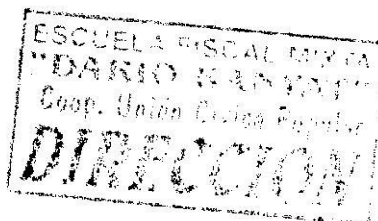 ESCUELA FISCAL MIXTA
"DARIO
Coop. Unión Cívica Popular
DIRECCION